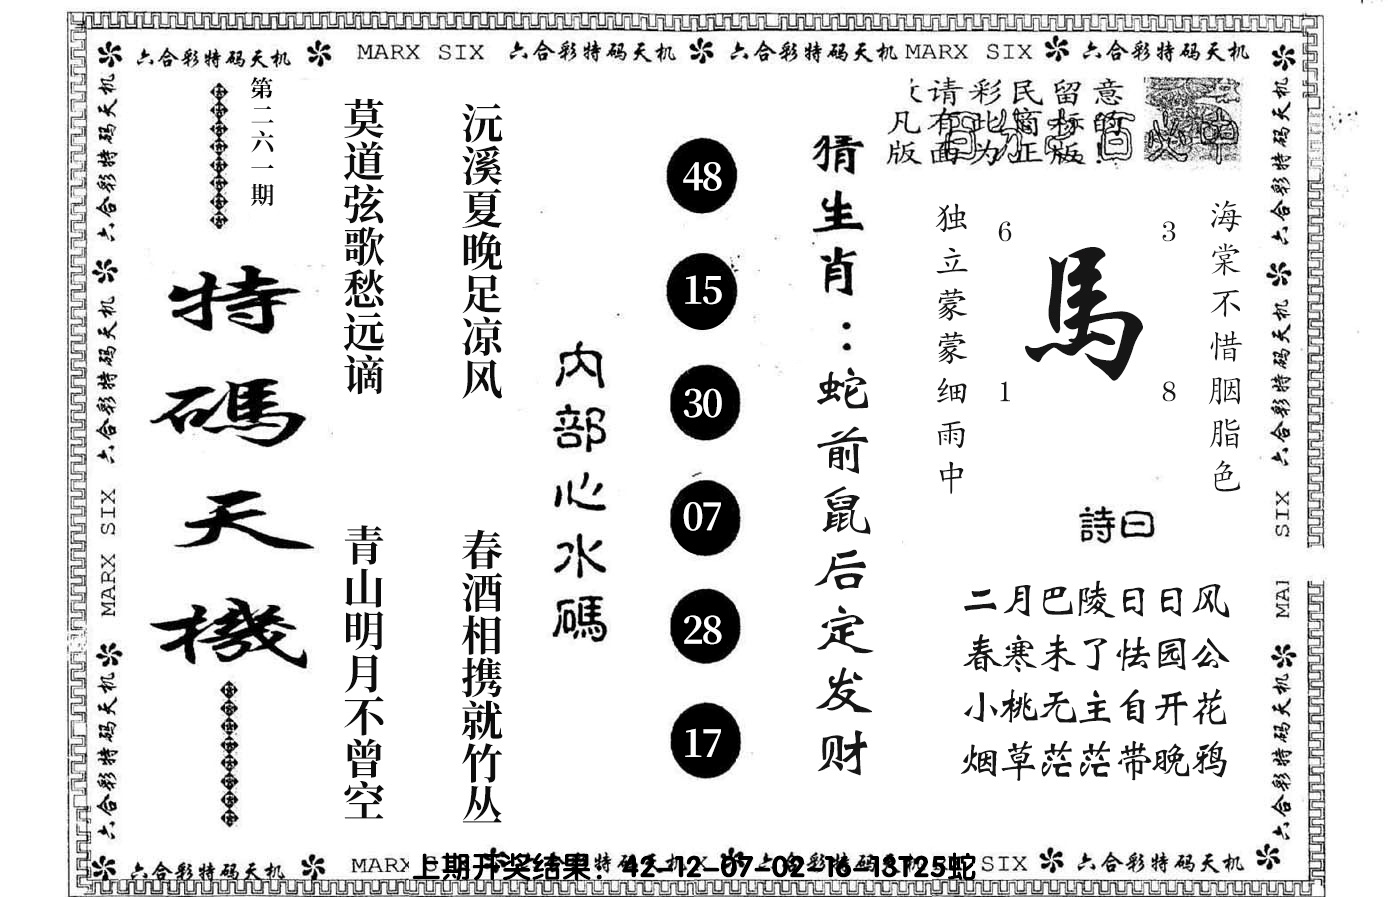 六合彩特码天机 MARX SIX 六合彩特码天机 六合彩特码天机 MARX SIX 六合彩特码天机
六合彩特码天机
六合彩特码天机
MARX SIX
六合彩特码天机
第二六一期
特碼天機
莫道弦歌愁远谪
青山明月不曾空
沅溪夏晚足凉风
春酒相携就竹丛
内部心水碼
48
15
30
07
28
17
猜生肖：蛇前鼠后定发财
请彩民留意
凡有此商标的
版面为正版！
独立蒙蒙细雨中
6
3
馬
1
8
海棠不惜胭脂色
詩曰
二月巴陵日日风
春寒未了怯园公
小桃无主自开花
烟草茫茫带晚鸦
六合彩特码天机
六合彩特码天机
SIX
MA
六合彩特码天机
六合彩特码天机 MARX
上期开奖结果：42-12-07-02-16-13T25蛇
SIX 六合彩特码天机